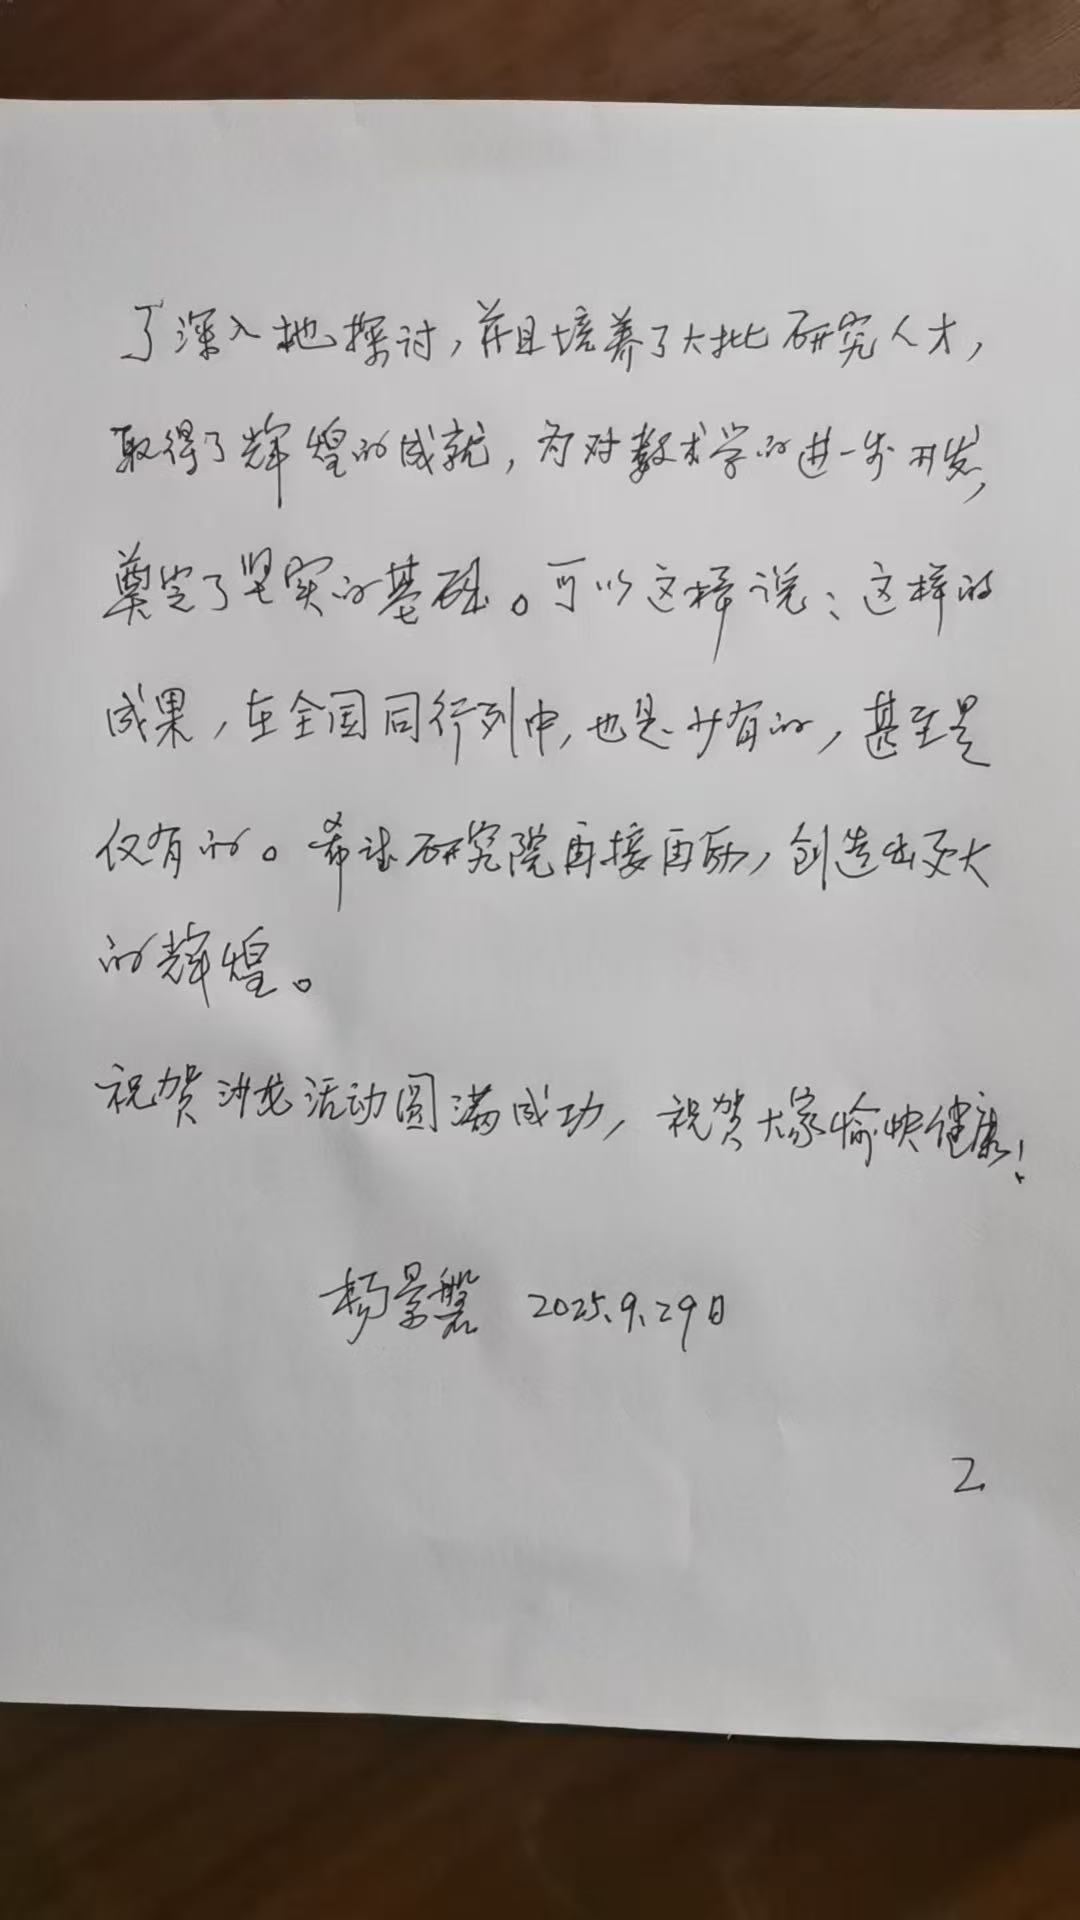 了深入地探讨，并且培养了大批研究人才，
取得了辉煌的成就，为对数术学的进一步开发，
奠定了坚实的基础。可以这样说：这样的
成果，在全国同行列中，也是少有的，甚至是
仅有的。希望研究院再接再励，创造出更大
的辉煌。
祝贺沙龙活动圆满成功，祝贺大家愉快健康！
杨景磐 2025.9.29日
2